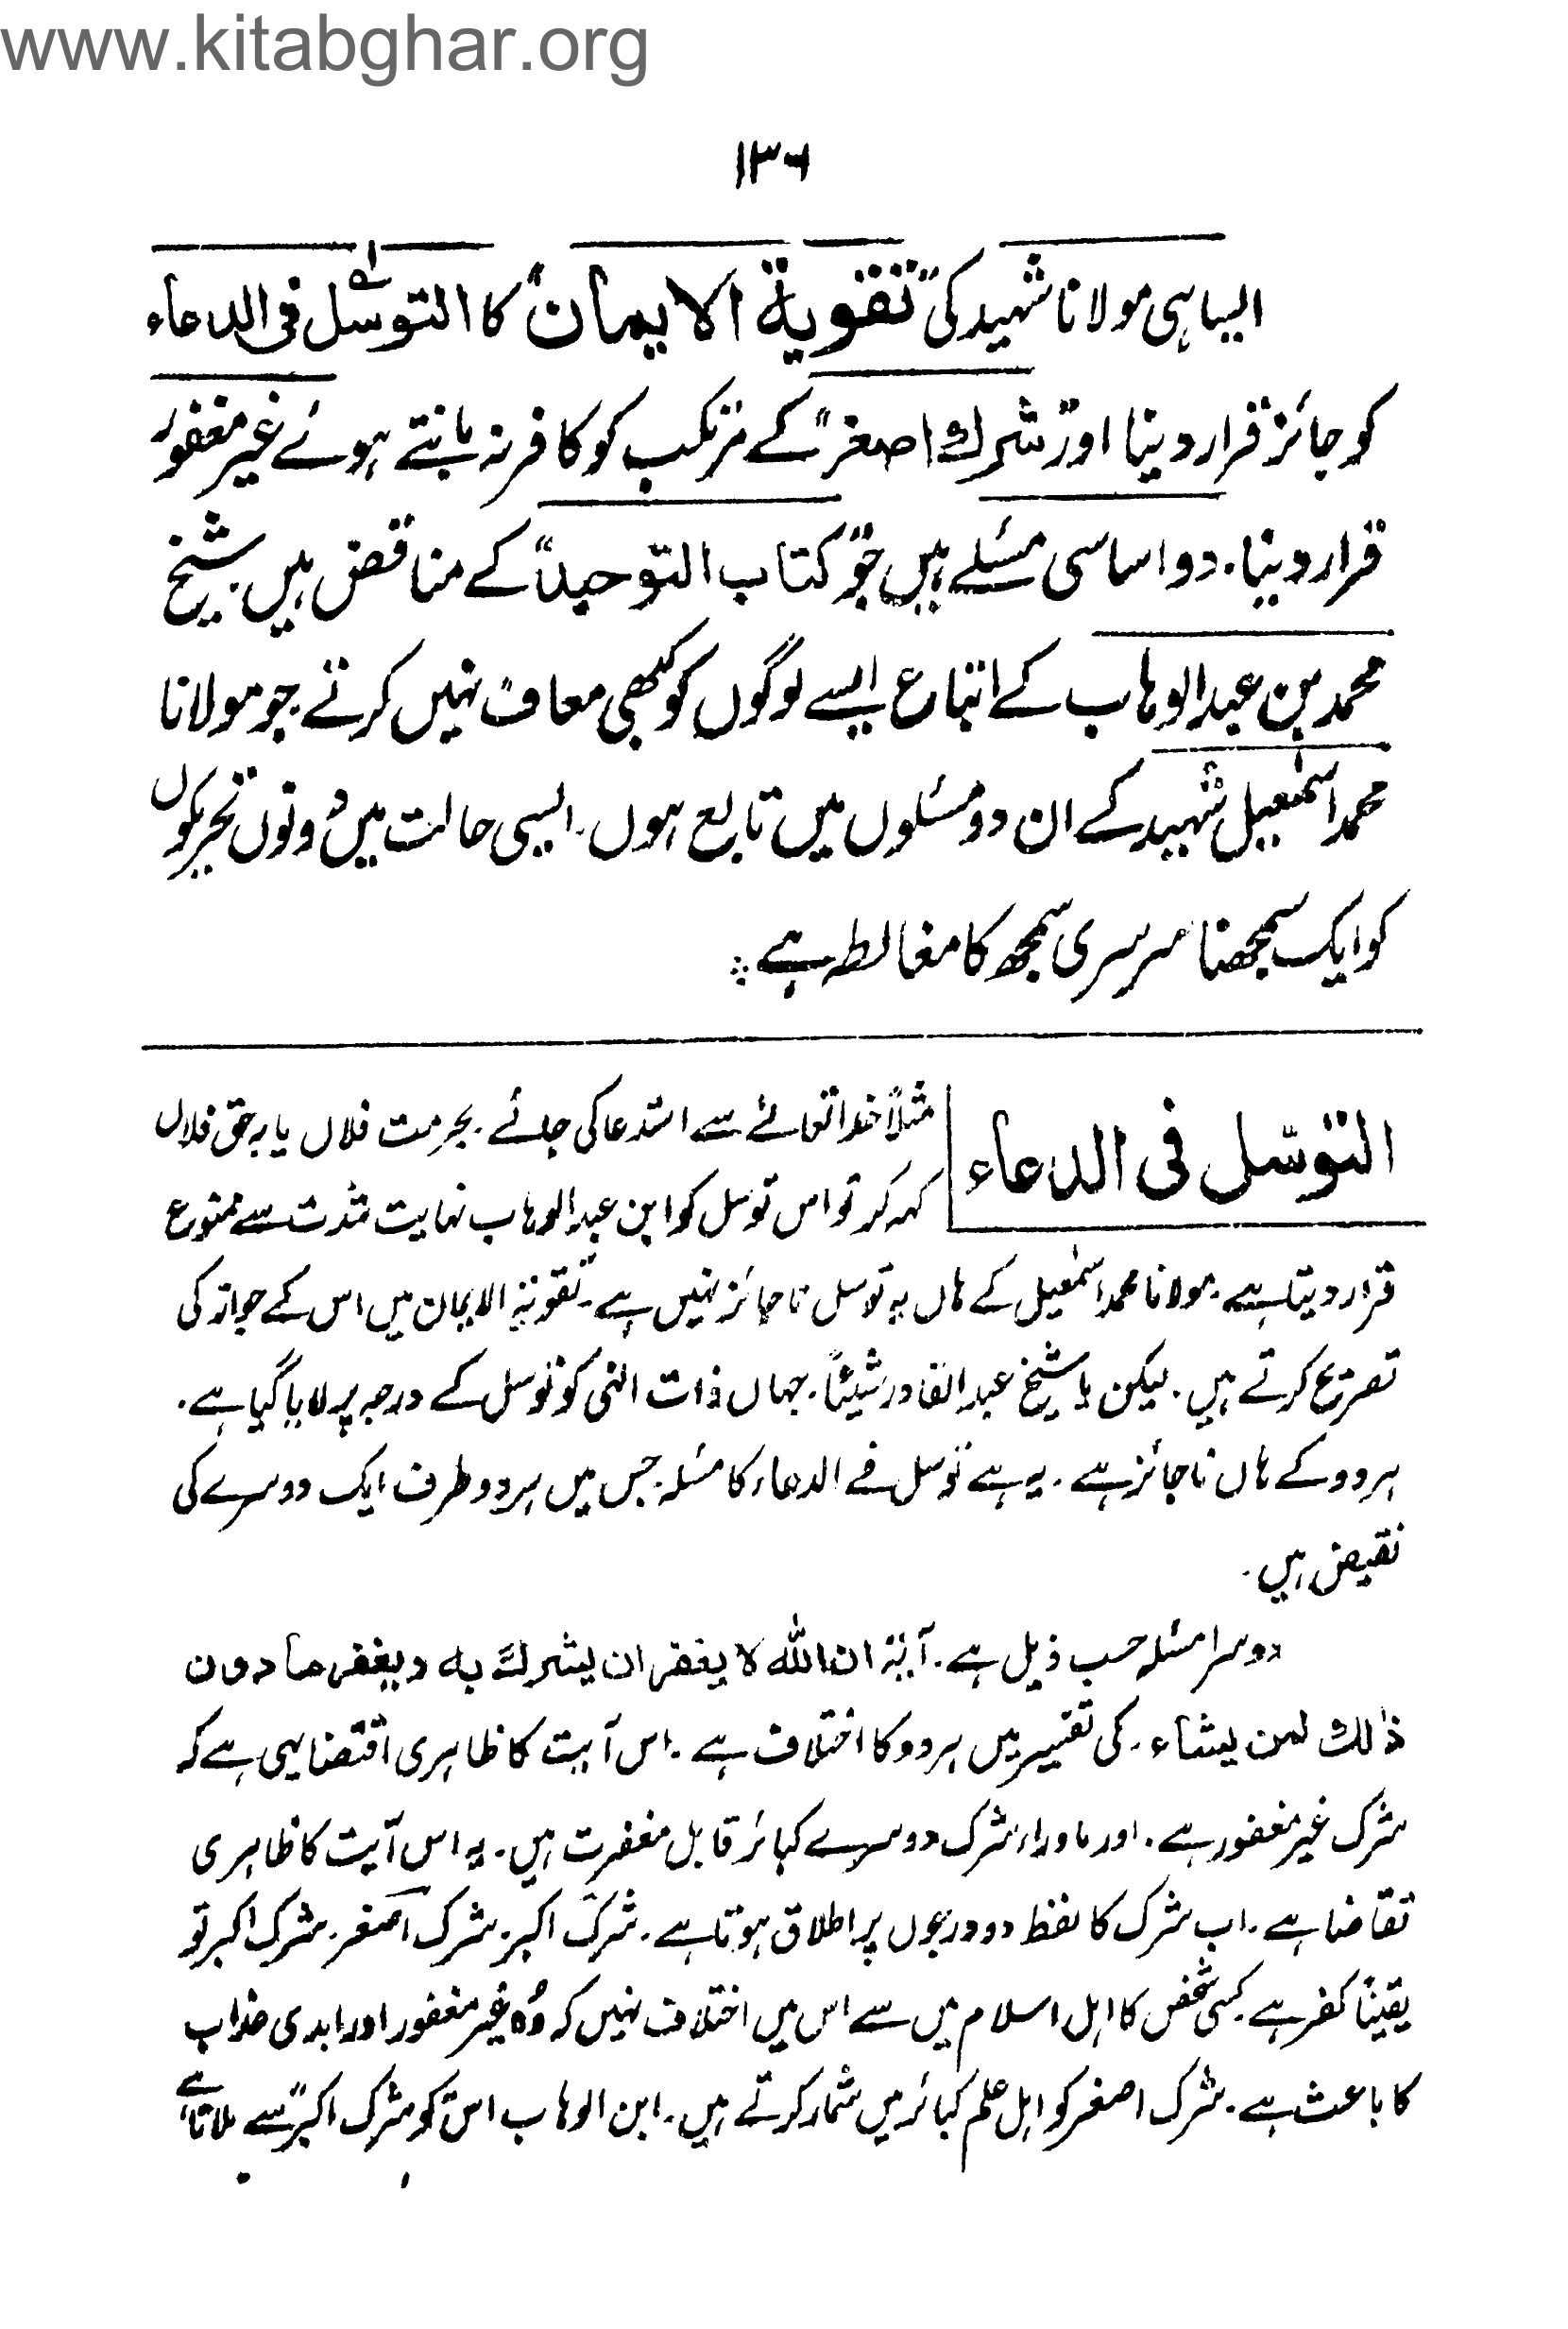 www.kitabghar.org
۱۳۶
ایسا ہی مولانا شہید کی "تقویة الایمان" کا التوسّل فی الدعاء
کو جائز قرار دینا اور "شرك اصغر" کے مرتکب کو کافر نہ مانتے ہوئے غیر مغفور
قرار دینا۔ دو اساسی مسئلے ہیں جو "کتاب التوحید" کے مناقض ہیں۔ شیخ
محمد بن عبدالوہاب کے اتباع ایسے لوگوں کو کبھی معاف نہیں کرتے جو مولانا
محمد اسمٰعیل شہید کے ان دو مسئلوں میں تابع ہوں۔ ایسی حالت میں دونوں تحریکوں
کو ایک سمجھنا سرسری سمجھ کا مغالطہ ہے ؞
التوسّل فی الدعاء
مثلاً خدا تعالےٰ سے استدعا کی جائے۔ بحرمت فلاں یا بہ حق فلاں
کہہ کر تو اس توسل کو ابن عبدالوہاب نہایت شدت سے ممنوع
قرار دیتا ہے۔ مولانا محمد اسمٰعیل کے ہاں یہ توسل ناجائز نہیں ہے۔ تقویۃ الایمان میں اس کے جواز کی
تصریح کرتے ہیں۔ لیکن یا شیخ عبدالقادر شیئاً۔ جہاں ذات الٰہی کو توسل کے درجہ پر لایا گیا ہے۔
ہر دو کے ہاں ناجائز ہے۔ یہ ہے توسل فے الدعاء کا مسئلہ۔ جس میں ہر دو طرف ایک دوسرے کی
نقیض ہیں۔
دوسرا مسئلہ حسب ذیل ہے۔ آیۃ ان الله لا یغفر ان یشرك به و یغفر ما دون
ذٰلك لمن یشاء۔ کی تفسیر میں ہر دو کا اختلاف ہے۔ اس آیت کا ظاہری اقتضا یہی ہے کہ
شرک غیر مغفور ہے۔ اور ماوراء شرک دوسرے کبائر قابل مغفرت ہیں۔ یہ اس آیت کا ظاہری
تقاضا ہے۔ اب شرک کا لفظ دو درجوں پر اطلاق ہوتا ہے۔ شرک اکبر۔ شرک اصغر۔ شرک اکبر تو
یقیناً کفر ہے۔ کسی شخص کا اہل اسلام میں سے اس میں اختلاف نہیں کہ وُہ غیر مغفور اور ابدی عذاب
کا باعث ہے۔ شرک اصغر کو اہل علم کبائر میں شمار کرتے ہیں۔ ابن الوہاب اس کو "شرک اکبر" سے ملاتا ہے